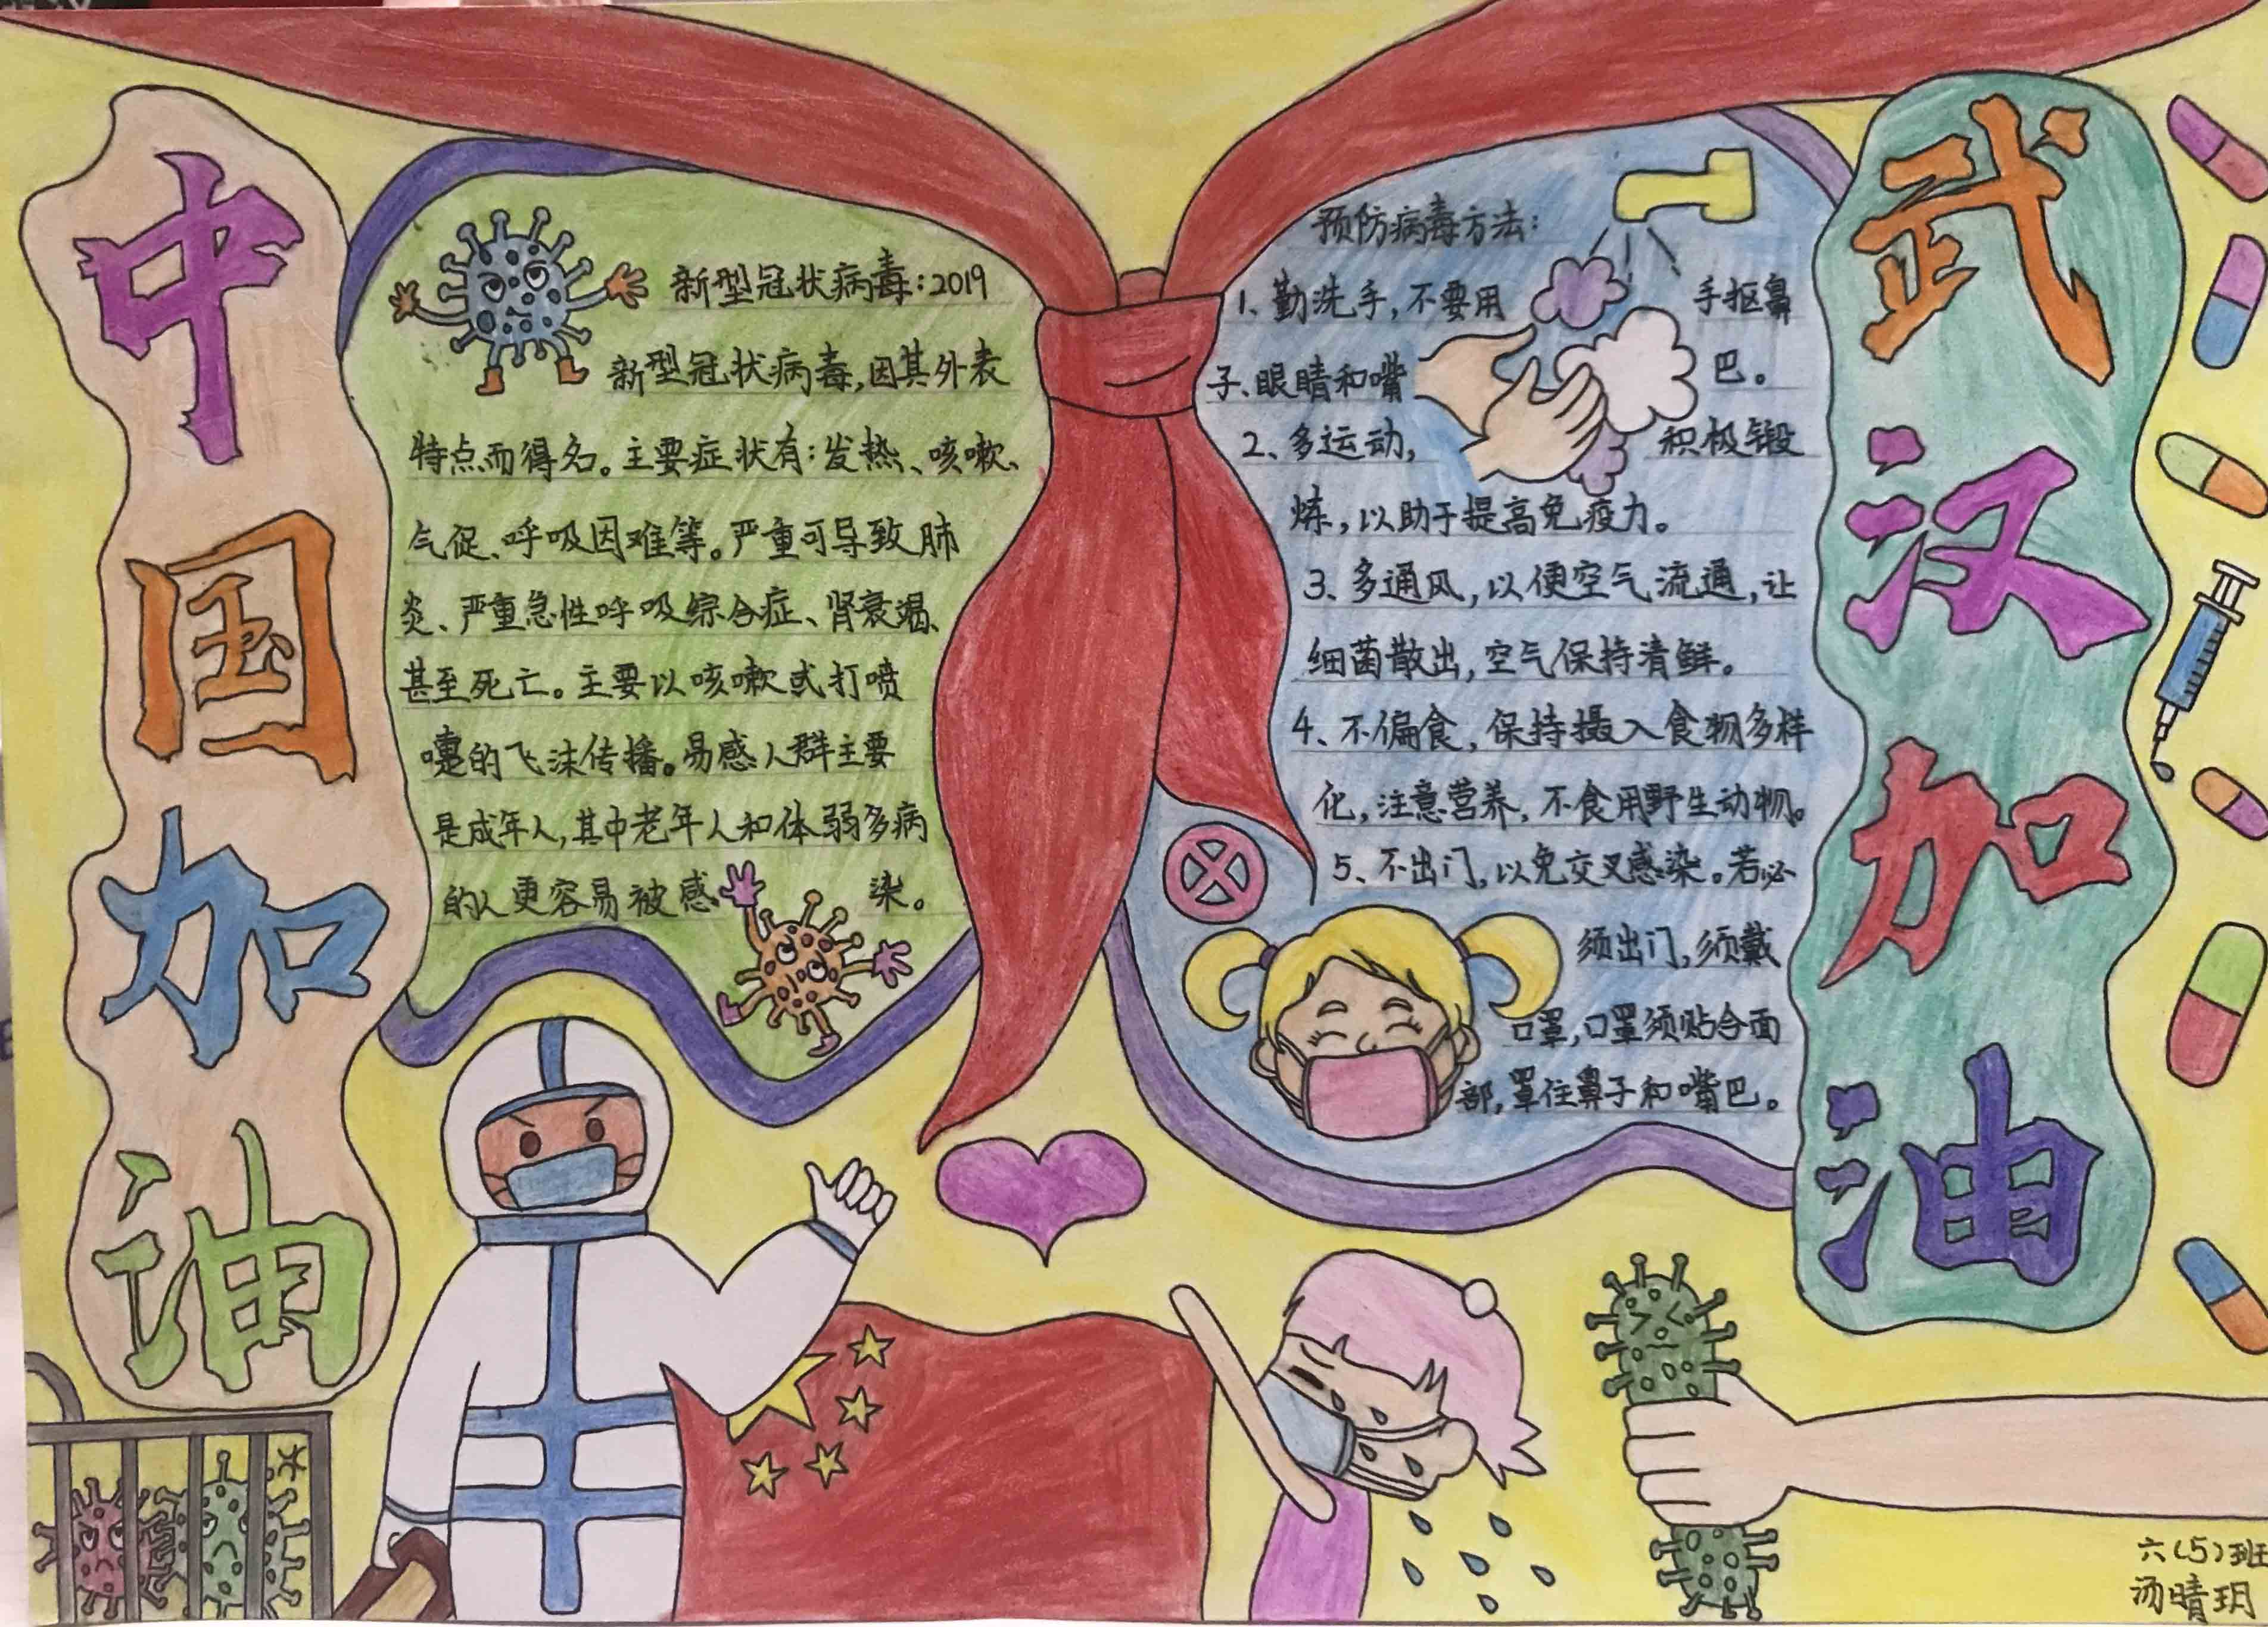 中国加油
新型冠状病毒:2019
新型冠状病毒,因其外表
特点而得名。主要症状有:发热、咳嗽、
气促、呼吸困难等。严重可导致肺
炎、严重急性呼吸综合症、肾衰竭、
甚至死亡。主要以咳嗽或打喷
嚏的飞沫传播。易感人群主要
是成年人,其中老年人和体弱多病
的人更容易被感 染。
预防病毒方法:
1、勤洗手,不要用 手抠鼻
子、眼睛和嘴 巴。
2、多运动, 积极锻
炼,以助于提高免疫力。
3、多通风,以便空气流通,让
细菌散出,空气保持清鲜。
4、不偏食,保持摄入食物多样
化,注意营养,不食用野生动物。
5、不出门,以免交叉感染。若必
须出门,须戴
口罩,口罩须贴合面
部,罩住鼻子和嘴巴。
武汉加油
六(5)班
汤晴玥